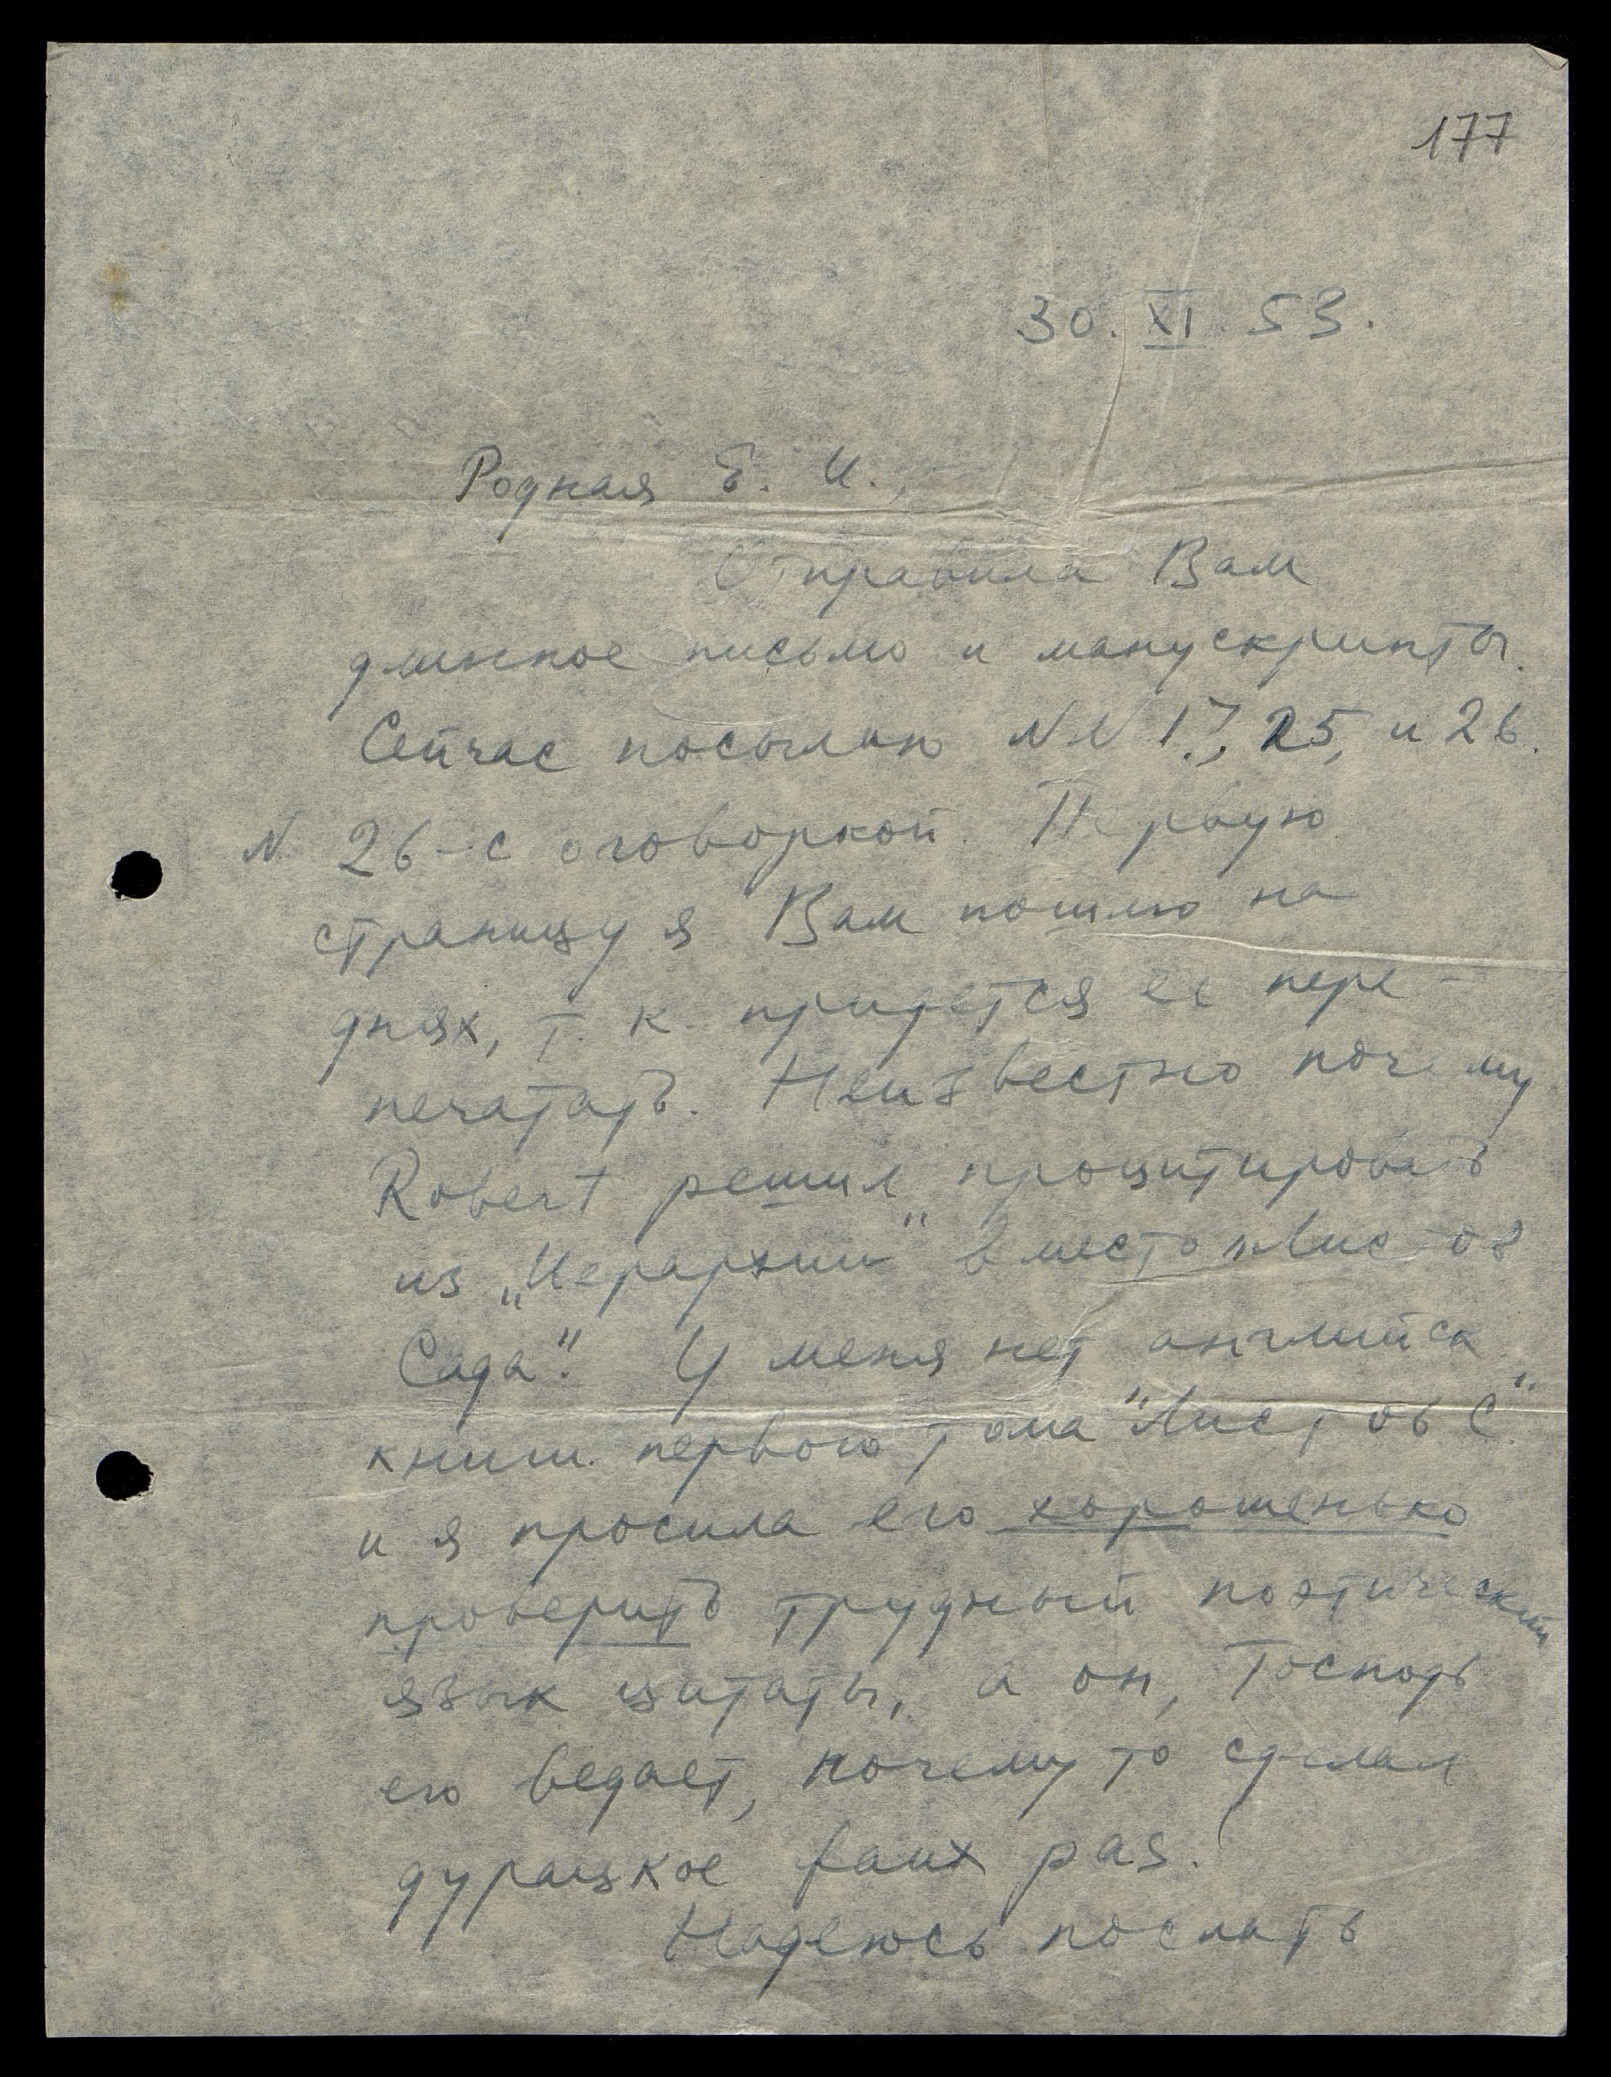 177
30. XI. 53.
Родная Е. И.,
Отправила Вам
длинное письмо и манускрипты.
Сейчас посылаю NN 17, 25, и 26.
N 26 - с оговоркой. Первую
страницу я Вам пошлю на
днях, т. к. придется ее пере-
печатать. Неизвестно почему
Robert решил процитировать
из „Иерархии" вместо „Листов
Сада". У меня нет английск.
книги первого тома "Листов С."
и я просила его хорошенько
проверить трудный поэтический
язык цитаты, а он, Господь
его ведает, почему то сделал
дурацкое faux pas.
Надеюсь послать